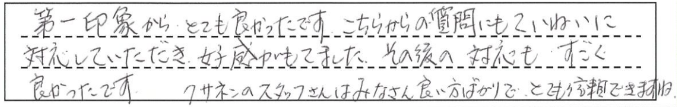 第一印象からとても良かったです。こちらからの質問にもていねいに
対応していただき、好感がもてました。その後の対応もすごく
良かったです。 クサネンのスタッフさんはみなさん良い方ばかりで、とても信頼できますね。